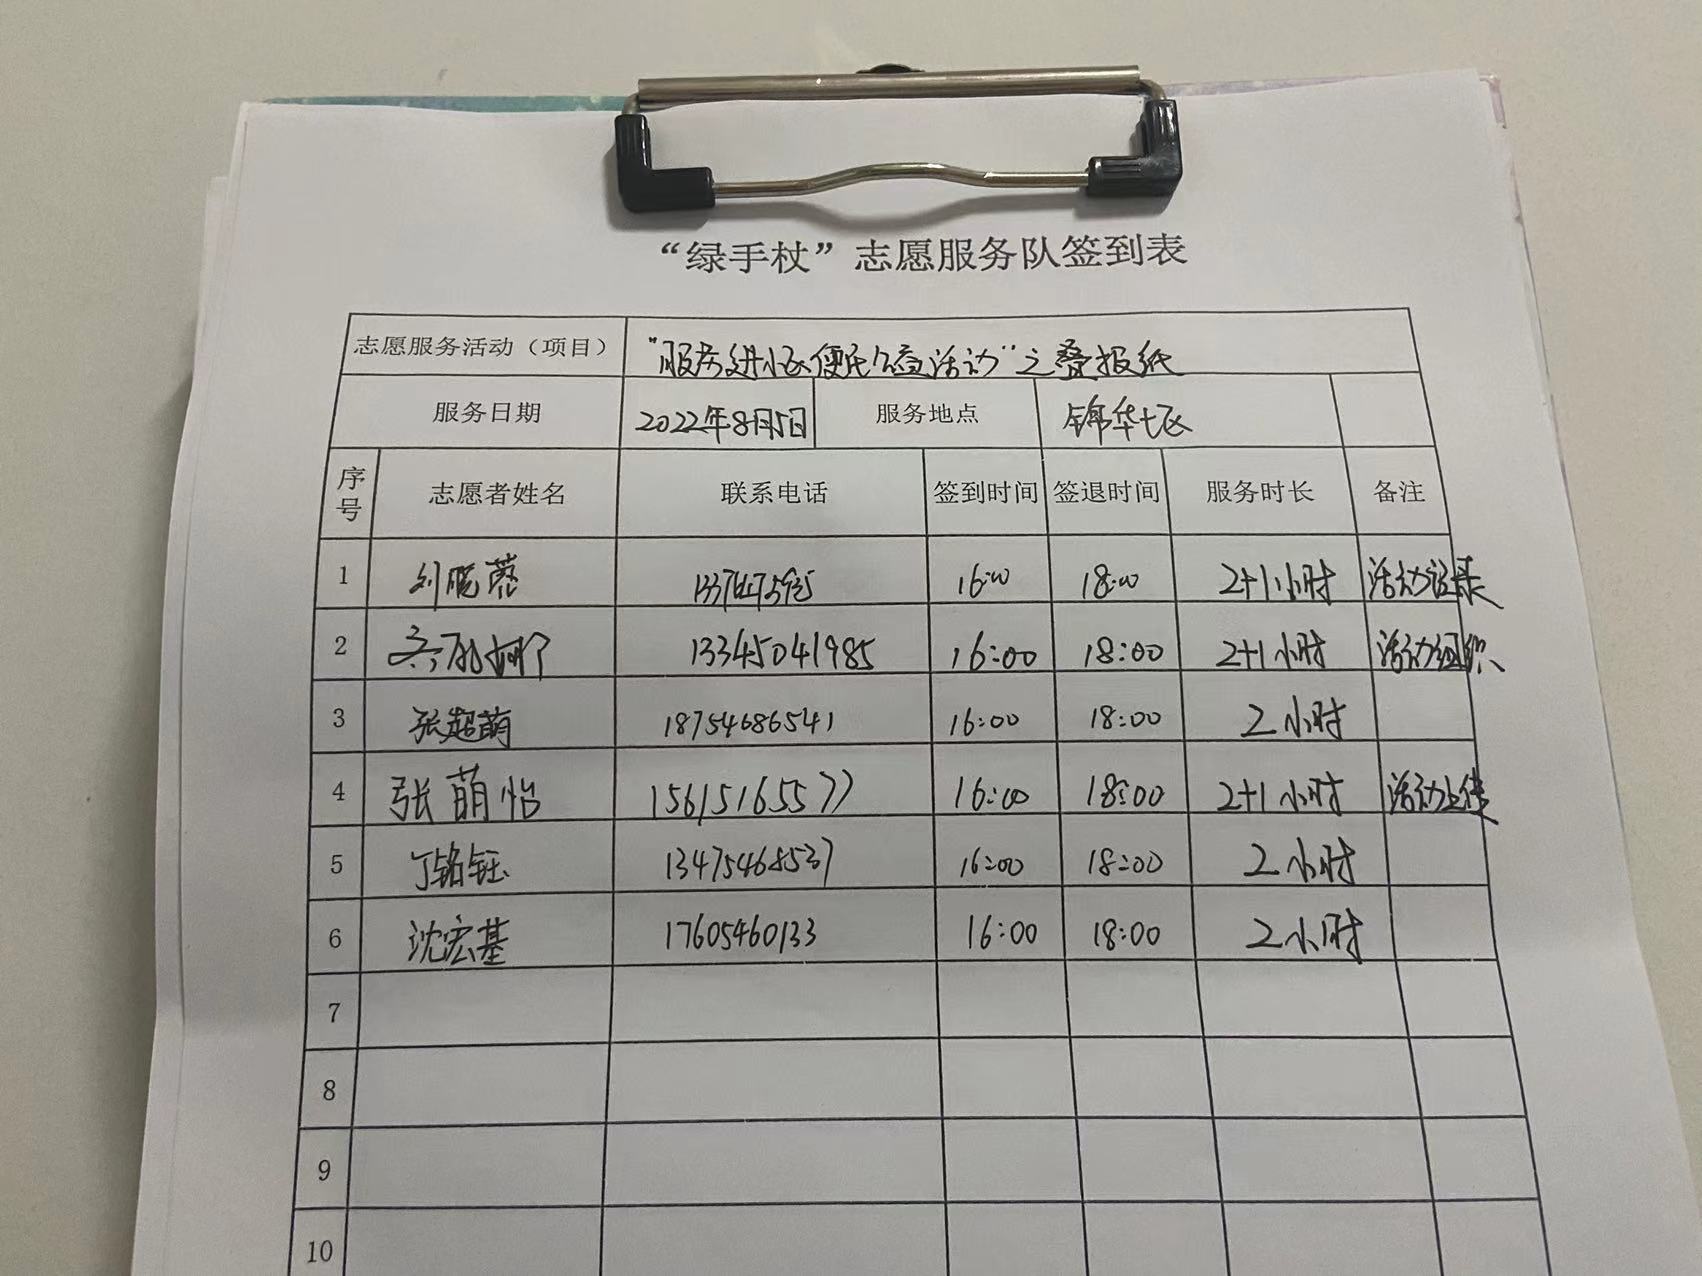 “绿手杖”志愿服务队签到表
志愿服务活动（项目） “服务进小区便民公益活动”之叠报纸
服务日期 2022年8月5日 服务地点 锦华七区
序号 志愿者姓名 联系电话 签到时间 签退时间 服务时长 备注
1 刘晓蓉 16:00 18:00 2+1小时 活动记录
2 13345041985 16:00 18:00 2+1小时 活动组织
3 张超萌 18754686541 16:00 18:00 2小时
4 张萌怡 15615165577 16:00 18:00 2+1小时 活动上传
5 丁铭钰 13475468537 16:00 18:00 2小时
6 沈宏基 17605460133 16:00 18:00 2小时
7
8
9
10